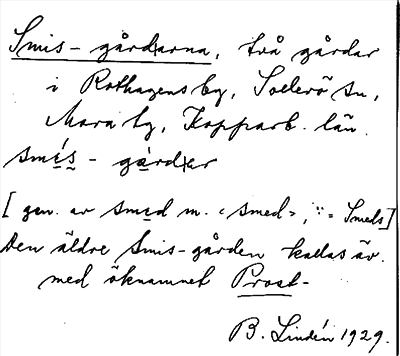 Smis-gårdarna, två gårdar
i Rothagens by, Sollerö sn,
Mora tg, Kopparb. län.
smís - gàrdar
[gen. av smed m. "smed", ": = Smeds]
Den äldre Smis-gården kallas äv.
med öknamnet Prost-
B. Lindén 1929.